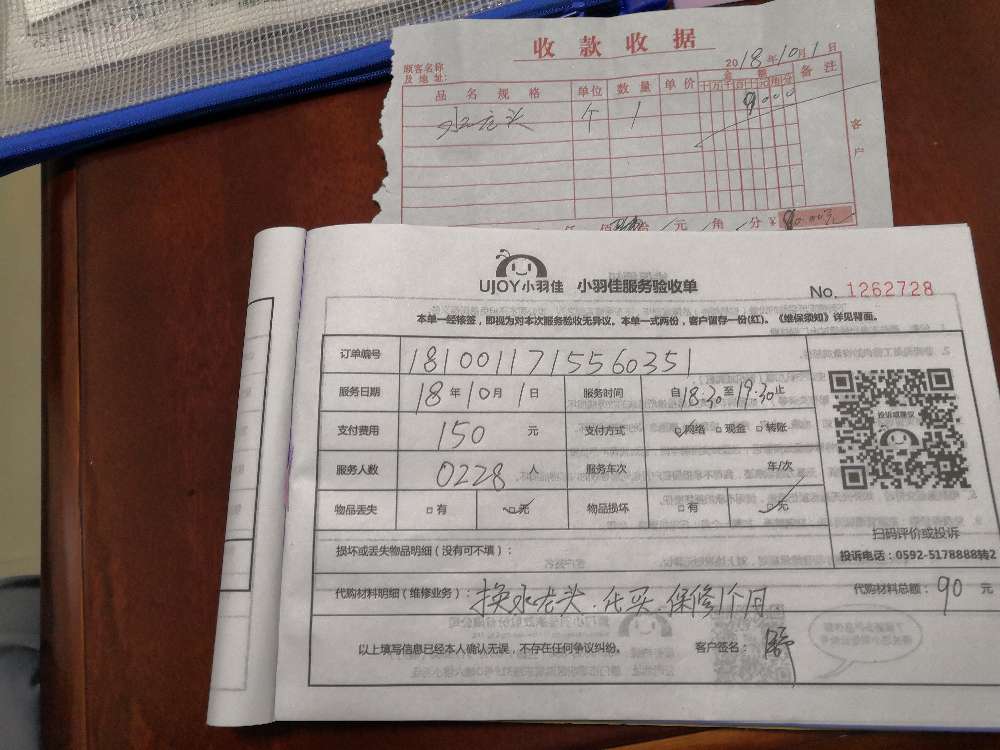 收款收据
顾客名称
及地址:
2018年10月1日
品名规格 单位 数量 单价 金额 备注
十万千百十元角分
水龙头 个 1 9000
客户
元 角 分 ¥ 90.00元
UJOY小羽佳 小羽佳服务验收单
No. 1262728
本单一经核签，即视为对本次服务验收无异议。本单一式两份，客户留存一份(红)。《维保须知》详见背面。
订单编号 1810011715560351
服务日期 18年10月1日 服务时间 自18:30至19:30止
支付费用 150 元 支付方式 网络 □现金 □转账
服务人数 0228 人 服务车次 车/次
物品丢失 □有 □无 物品损坏 □有 □无
投诉或建议
扫码评价或投诉
投诉电话：0592-5178888转2
损坏或丢失物品明细（没有可不填）：
代购材料明细（维修业务）：换水龙头.代买.保修1个月 代购材料总额：90 元
以上填写信息已经本人确认无误，不存在任何争议纠纷。 客户签名：